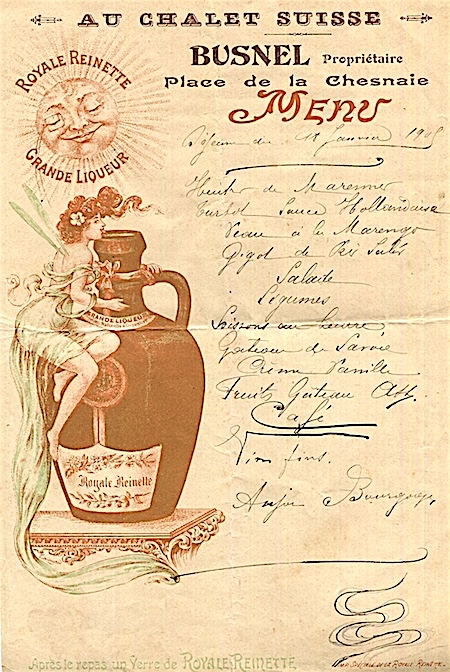 AU CHALET SUISSE
BUSNEL Propriétaire
Place de la Chesnaie
MENU
ROYALE REINETTE
GRANDE LIQUEUR
Janvier
de Marennes
Turbot Sauce Hollandaise
Veau à la Marengo
Gigot de Pré Salés
Salade
Légumes
au beurre
Gateau de Savoie
Crème Vanille
Fruits Gateau
Café
Vins fins.
Anjou Bourgogne,
GRANDE LIQUEUR
Royale Reinette
Après le repas un Verre de ROYALE REINETTE
DE LA ROYALE REINETTE